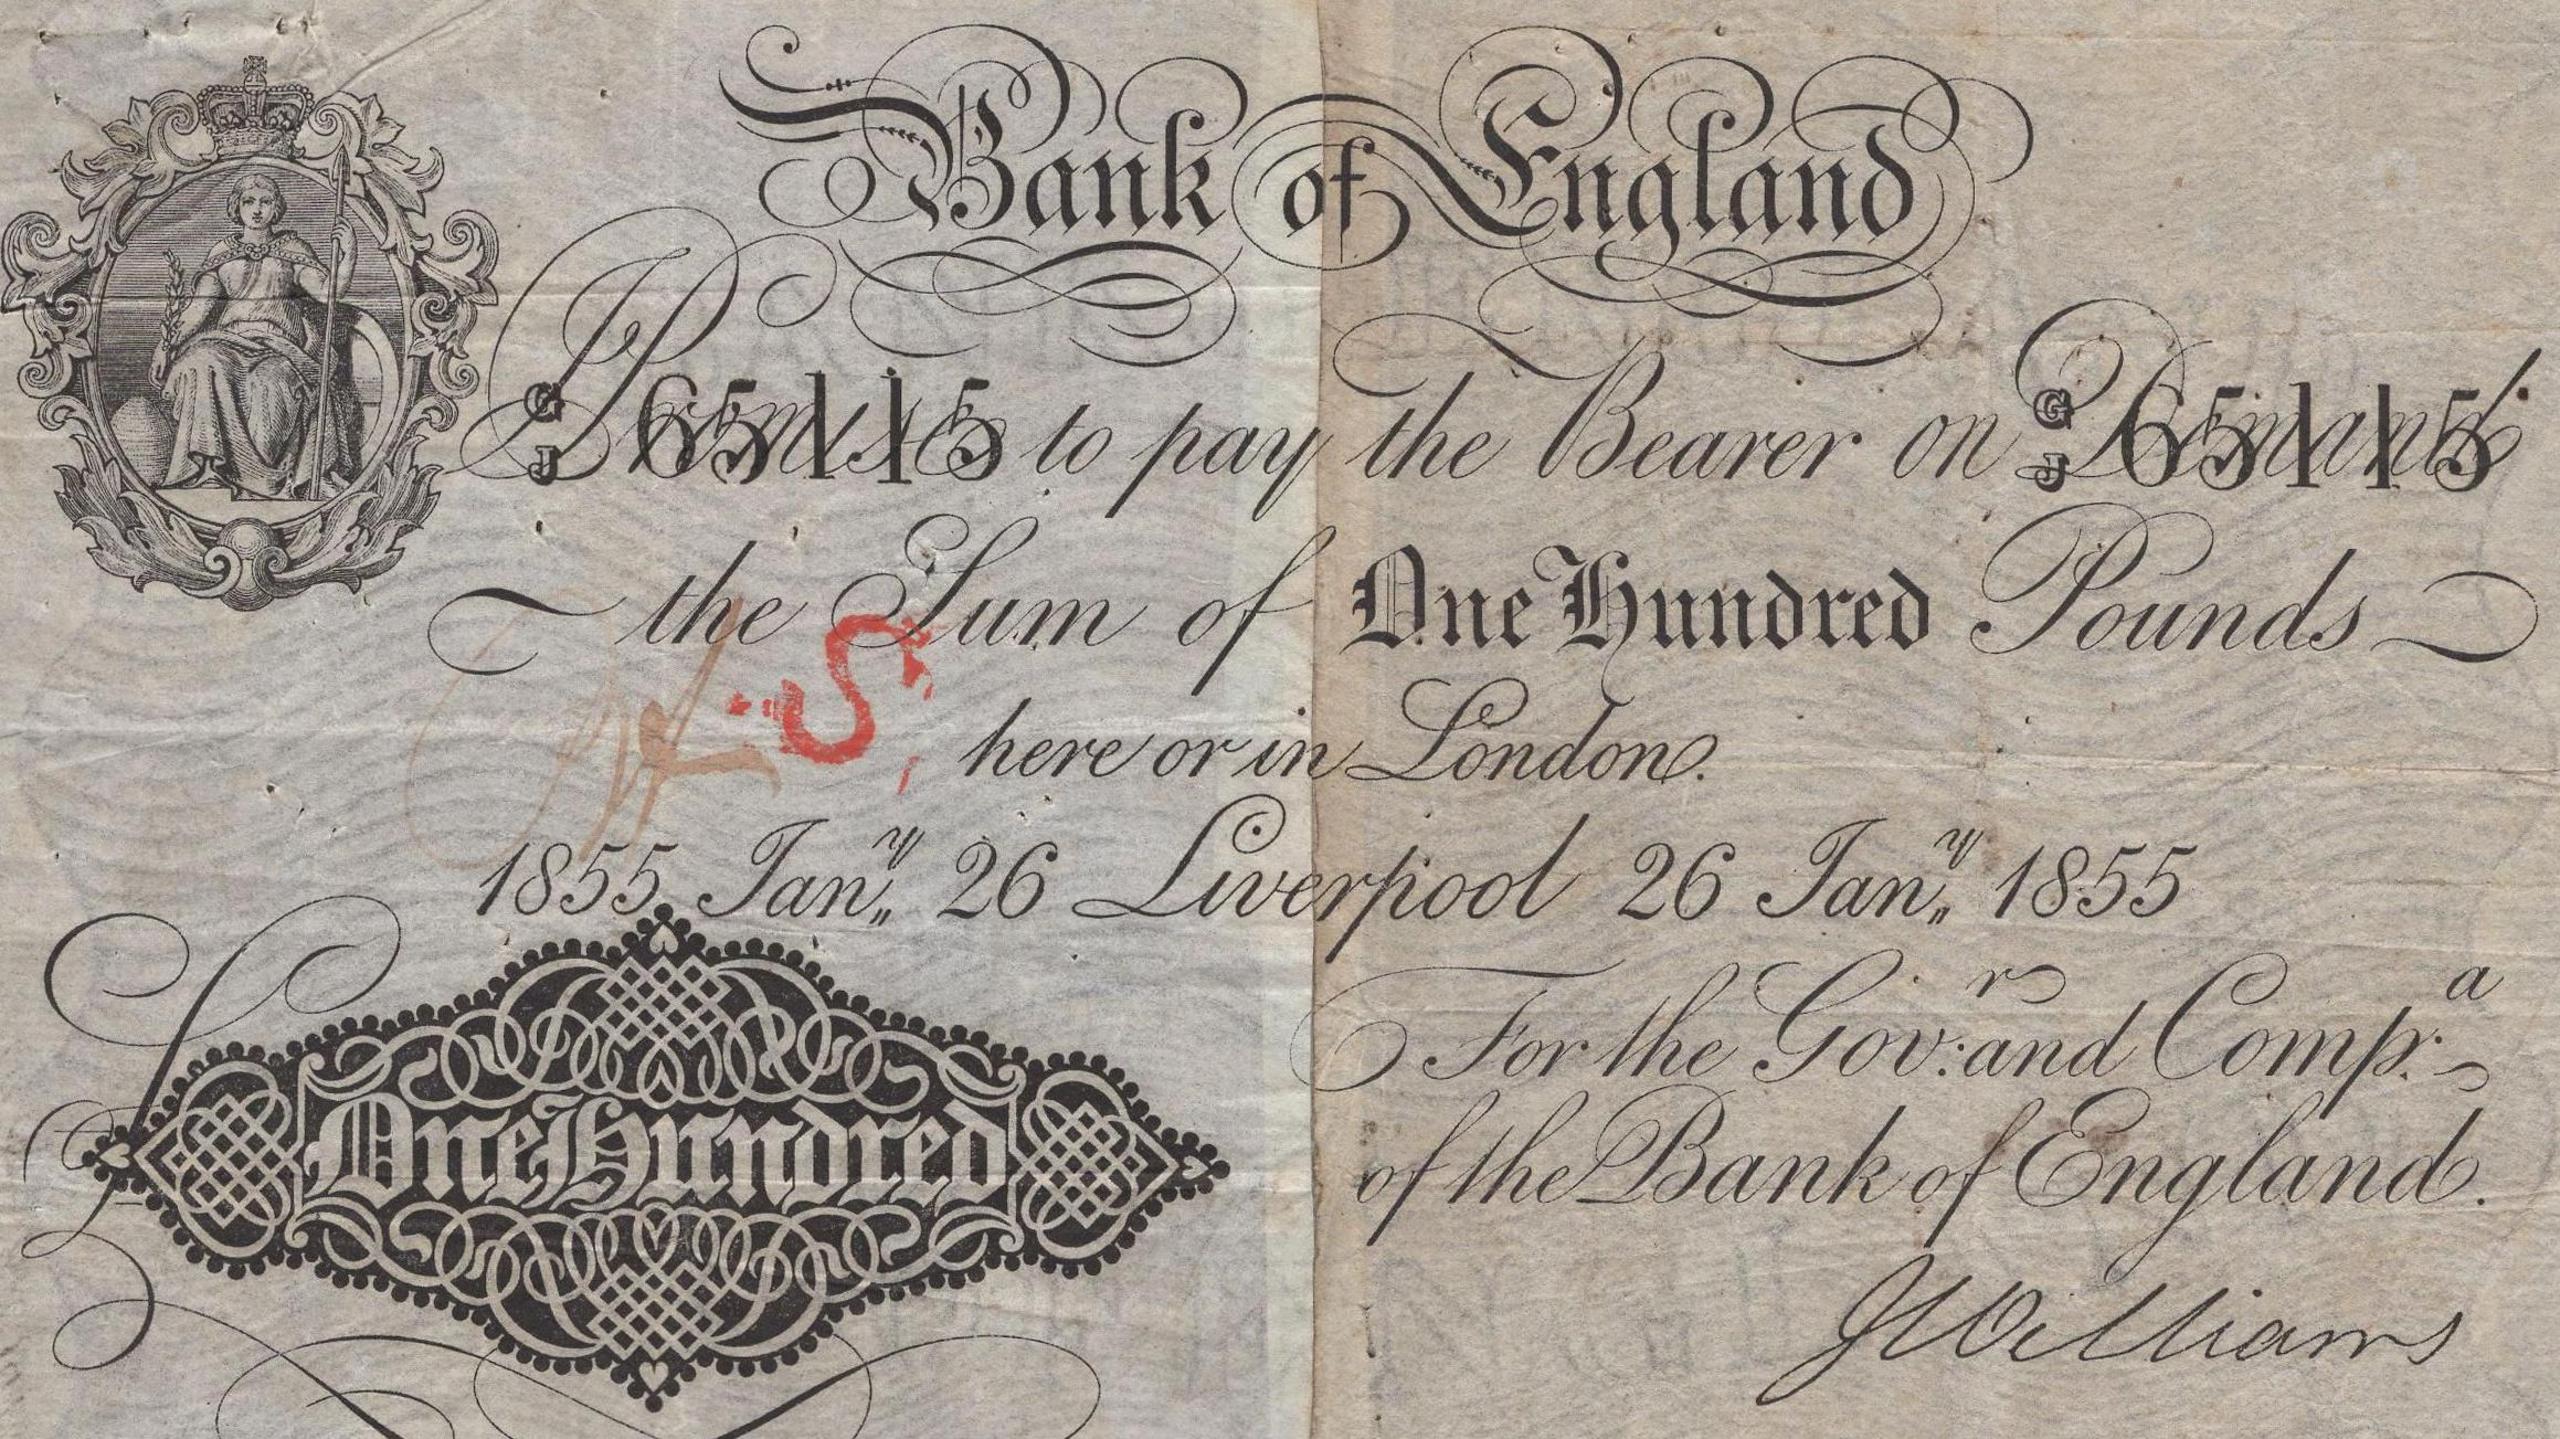 Bank of England
G/J 65115 Promise to pay the Bearer on Demand G/J 65115
the Sum of One Hundred Pounds
here or in London.
S
1855 Jan,,ʸ 26 Liverpool 26 Jan,,ʸ 1855
For the Gov:ʳ and Comp:ᵃ
of the Bank of England.
£ One Hundred
J Williams